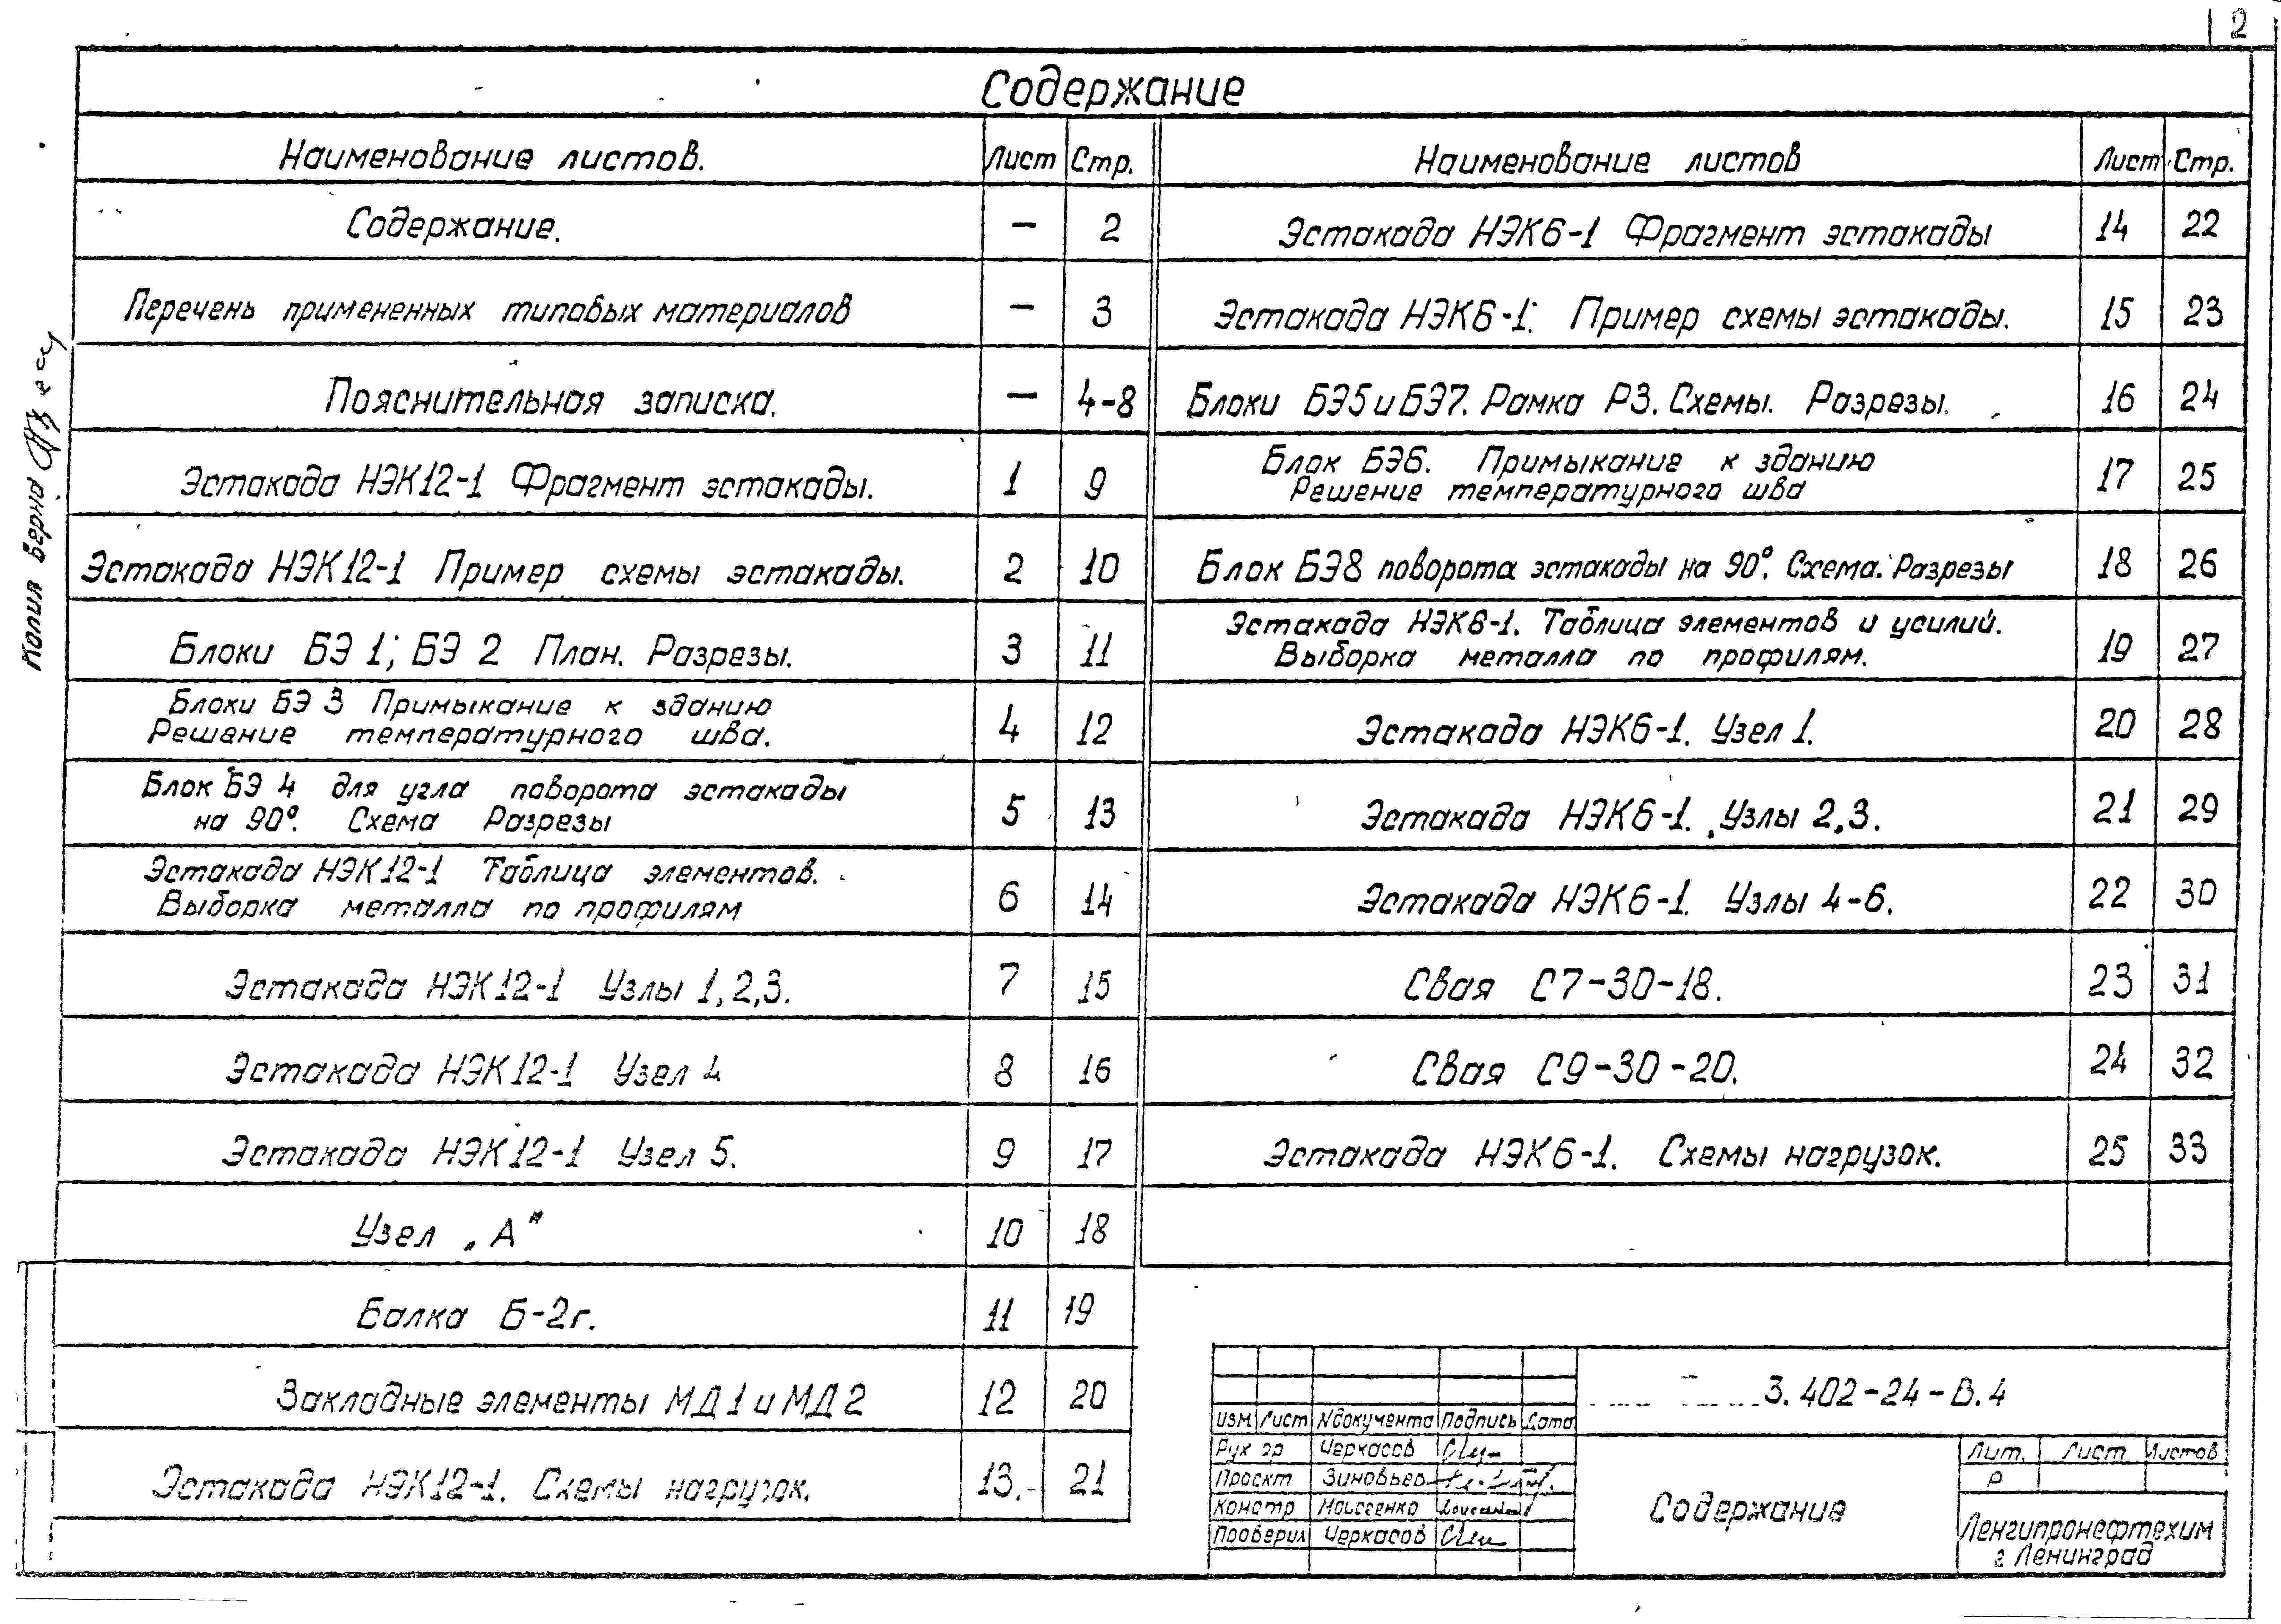 2
Содержание
Наименование листов. Лист Стр.
Содержание. — 2
Перечень примененных типовых материалов — 3
Пояснительная записка. — 4-8
Эстакада НЭК12-1 Фрагмент эстакады. 1 9
Эстакада НЭК12-1 Пример схемы эстакады. 2 10
Блоки БЭ 1; БЭ 2 План. Разрезы. 3 11
Блоки БЭ 3 Примыкание к зданию
Решение температурного шва. 4 12
Блок БЭ 4 для угла поворота эстакады
на 90°. Схема Разрезы 5 13
Эстакада НЭК12-1 Таблица элементов.
Выборка металла по профилям 6 14
Эстакада НЭК12-1 Узлы 1,2,3. 7 15
Эстакада НЭК12-1 Узел 4 8 16
Эстакада НЭК12-1 Узел 5. 9 17
Узел „А" 10 18
Балка Б-2г. 11 19
Закладные элементы МД1 и МД2 12 20
Эстакада НЭК12-1. Схемы нагрузок. 13. 21
Наименование листов Лист Стр.
Эстакада НЭК6-1 Фрагмент эстакады 14 22
Эстакада НЭК6-1. Пример схемы эстакады. 15 23
Блоки БЭ5 и БЭ7. Рамка Р3. Схемы. Разрезы. 16 24
Блок БЭ6. Примыкание к зданию
Решение температурного шва 17 25
Блок БЭ8 поворота эстакады на 90°. Схема. Разрезы 18 26
Эстакада НЭК6-1. Таблица элементов и усилий.
Выборка металла по профилям. 19 27
Эстакада НЭК6-1. Узел 1. 20 28
Эстакада НЭК6-1. Узлы 2,3. 21 29
Эстакада НЭК6-1. Узлы 4-6. 22 30
Свая С7-30-18. 23 31
Свая С9-30-20. 24 32
Эстакада НЭК6-1. Схемы нагрузок. 25 33
Копия верна
3.402-24-В.4
Изм Лист №документа Подпись Дата
Рук гр Черкасов
Проект Зиновьев
Констр Моисеенко
Проверил Черкасов
Содержание
Лит. Лист Листов
Р
Ленгипронефтехим
г Ленинград